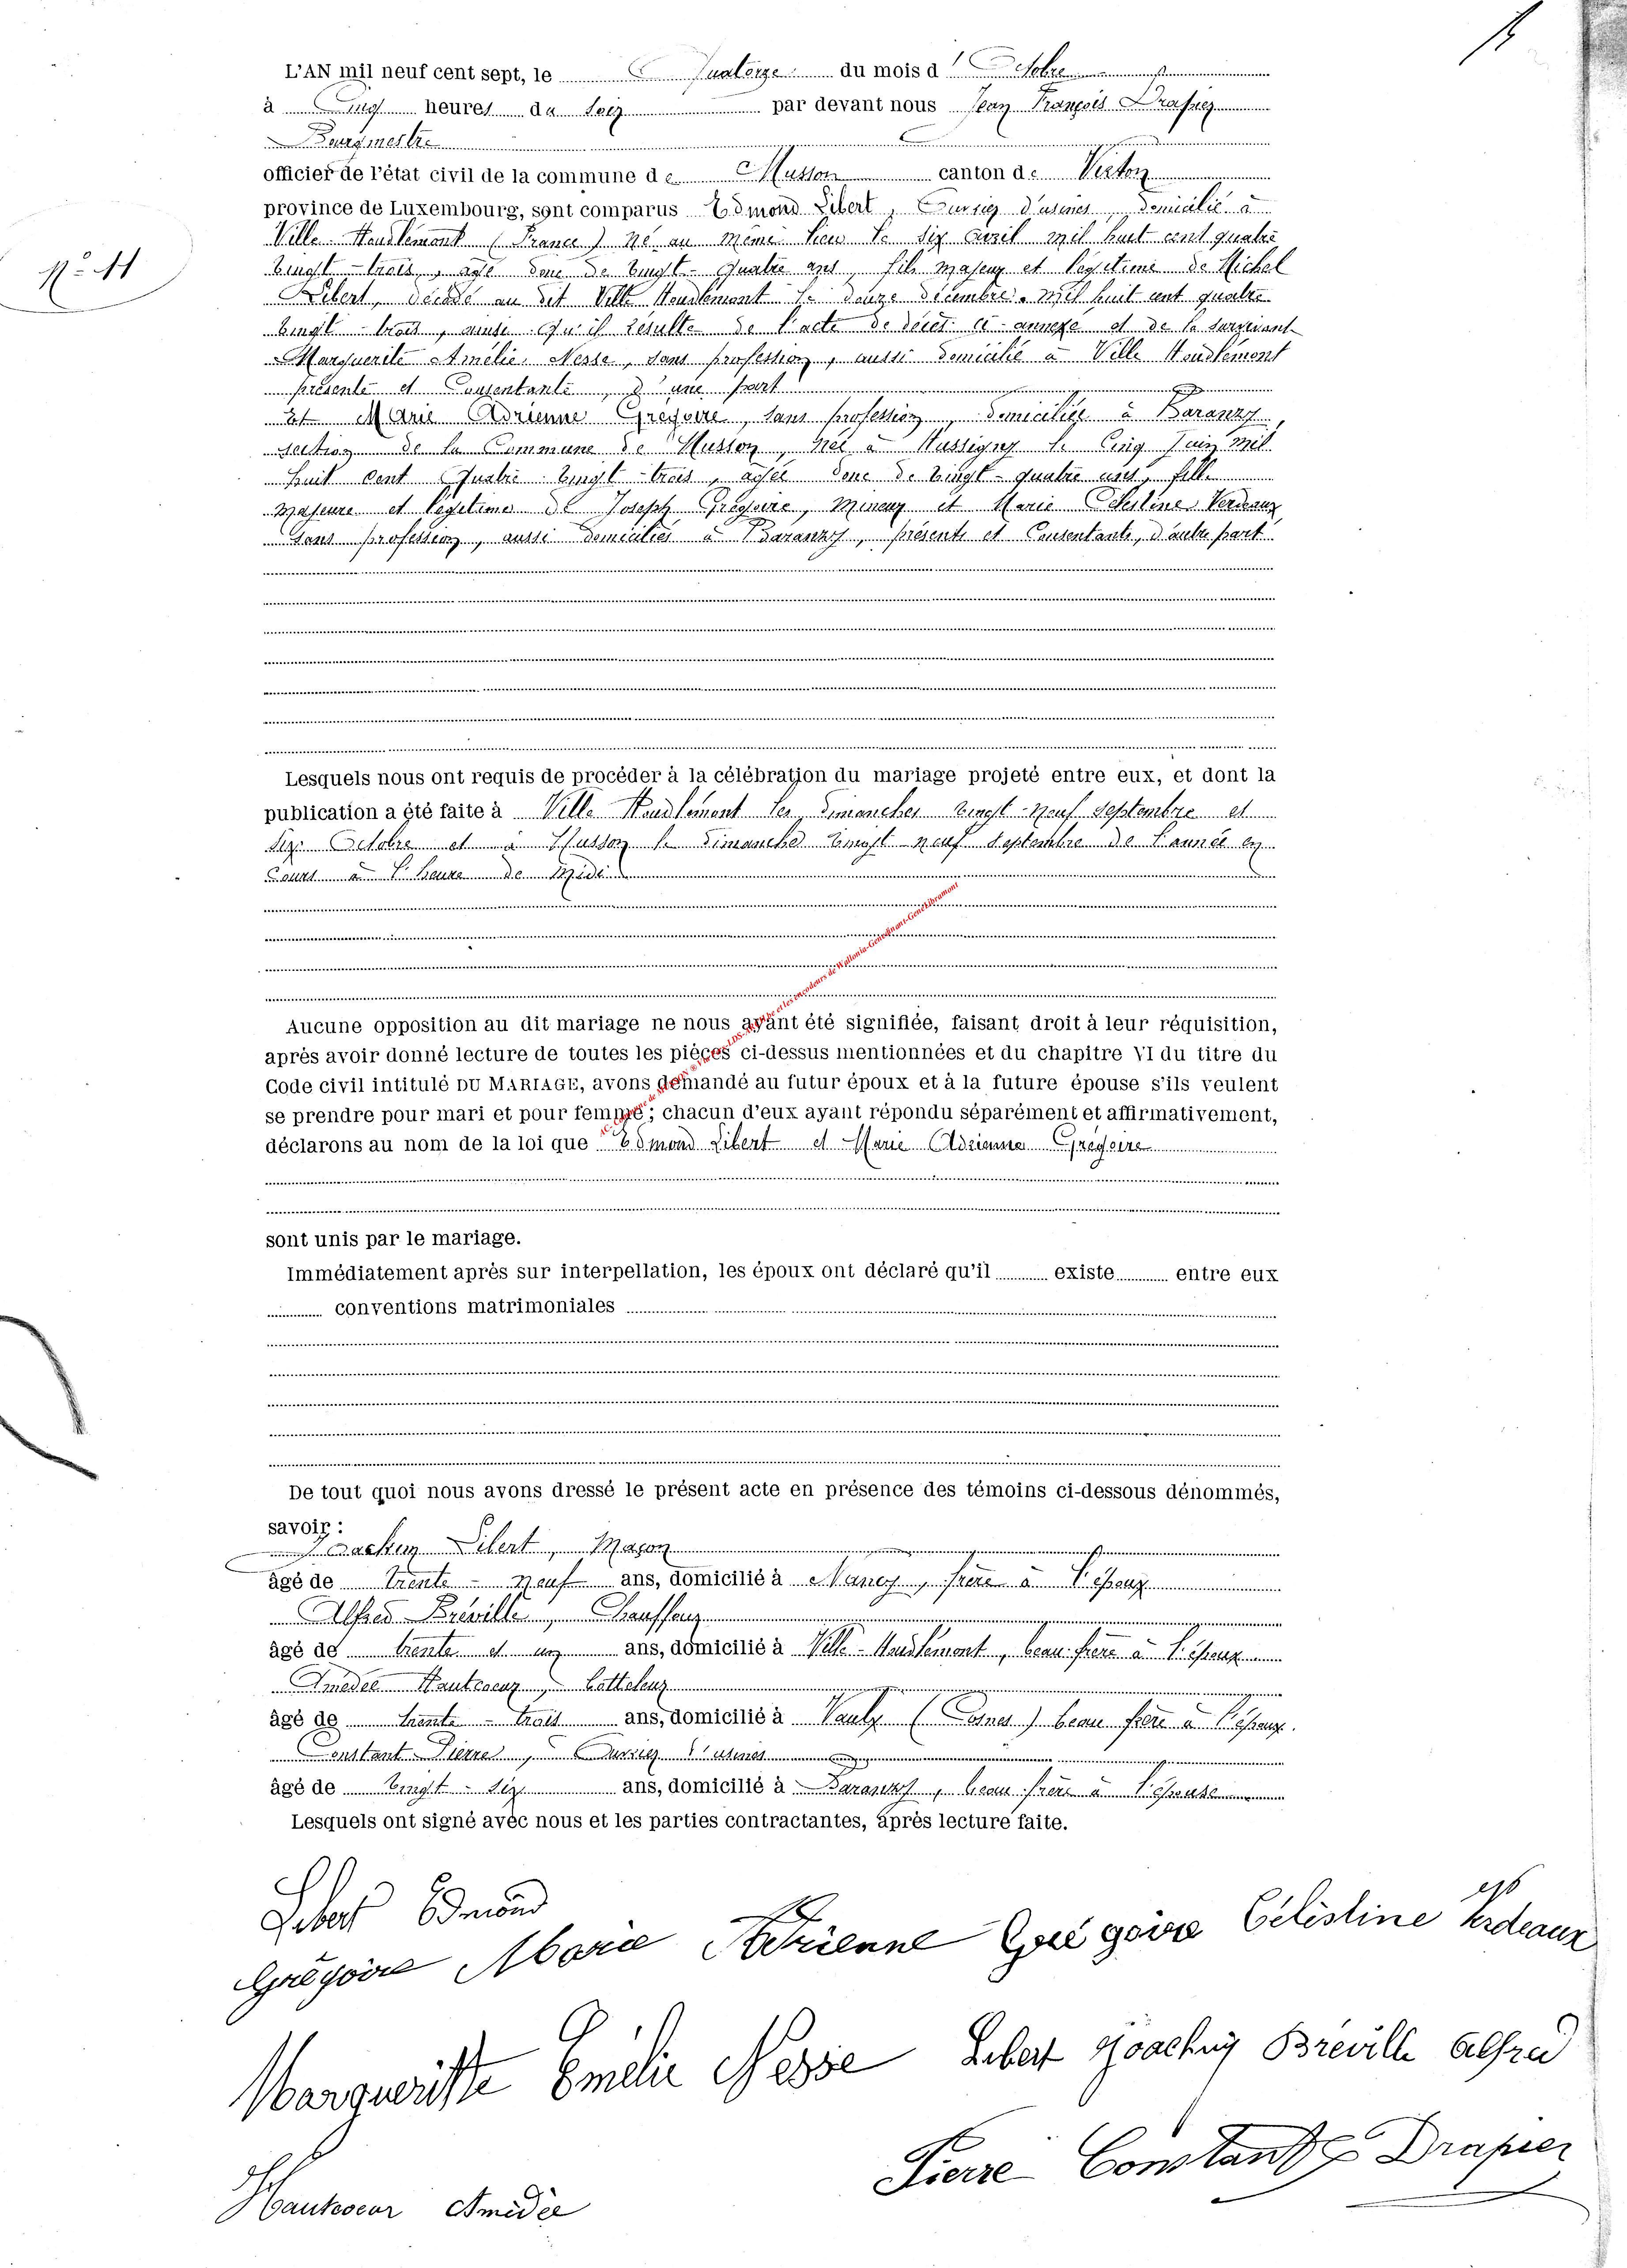 L'AN mil neuf cent sept, le Quatorze du mois d'Octobre
à Cinq heures du Soir par devant nous Jean François Drapier
Bourgmestre
officier de l'état civil de la commune de Musson canton de Virton
province de Luxembourg, sont comparus Edmond Libert, Ouvrier d'usines, domicilié à
Ville Houdlémont (France) né au même lieu le six avril mil huit cent quatre
vingt-trois, âgé donc de vingt-quatre ans, fils majeur et légitime de Michel
Libert, décédé au dit Ville Houdlémont le douze décembre mil huit cent quatre
vingt-trois, ainsi qu'il résulte de l'acte de décès ci-annexé et de la survivante
Marguerite Amélie Nesse, sans profession, aussi domiciliée à Ville Houdlémont
présente et Consentante, d'une part
Et Marie Adrienne Grégoire, sans profession, domiciliée à Baranzy,
section de la Commune de Musson, née à Hussigny le Cinq Juin mil
huit cent Quatre vingt-trois, agée donc de vingt-quatre ans, fille
majeure et légitime de Joseph Grégoire, Mineur et Marie Célestine Verdeaux
sans profession, aussi domiciliés à Baranzy, présents et Consentants, d'autre part
N° 11
Lesquels nous ont requis de procéder à la célébration du mariage projeté entre eux, et dont la
publication a été faite à Ville Houdlémont les dimanches vingt-neuf septembre et
six Octobre et à Musson le dimanche vingt neuf septembre de l'année en
Cours à l'heure de Midi
Aucune opposition au dit mariage ne nous ayant été signifiée, faisant droit à leur réquisition,
après avoir donné lecture de toutes les pièces ci-dessus mentionnées et du chapitre VI du titre du
Code civil intitulé DU MARIAGE, avons demandé au futur époux et à la future épouse s'ils veulent
se prendre pour mari et pour femme; chacun d'eux ayant répondu séparément et affirmativement,
déclarons au nom de la loi que Edmond Libert et Marie Adrienne Grégoire
sont unis par le mariage.
Immédiatement après sur interpellation, les époux ont déclaré qu'il existe entre eux
conventions matrimoniales
De tout quoi nous avons dressé le présent acte en présence des témoins ci-dessous dénommés,
savoir:
Joachim Libert, Maçon
âgé de trente-neuf ans, domicilié à Nancy, frère à l'époux
Alfred Bréville, Chauffeur
âgé de trente et un ans, domicilié à Ville-Houdlémont, beau frère à l'époux
Amédée Hautcoeur, Batteleur
âgé de trente-trois ans, domicilié à Vaulx (Cosnes) beau frère à l'époux.
Constant Pierre, Ouvrier d'usines
âgé de vingt-six ans, domicilié à Baranzy, beau frère à l'épouse
Lesquels ont signé avec nous et les parties contractantes, après lecture faite.
Libert Edmond
Grégoire Marie Adrienne Grégoire Célestine Verdeaux
Margueritte Emélie Nesse Libert Joachim Breville Alfred
Pierre Constant Drapier
Hautcoeur Amédée